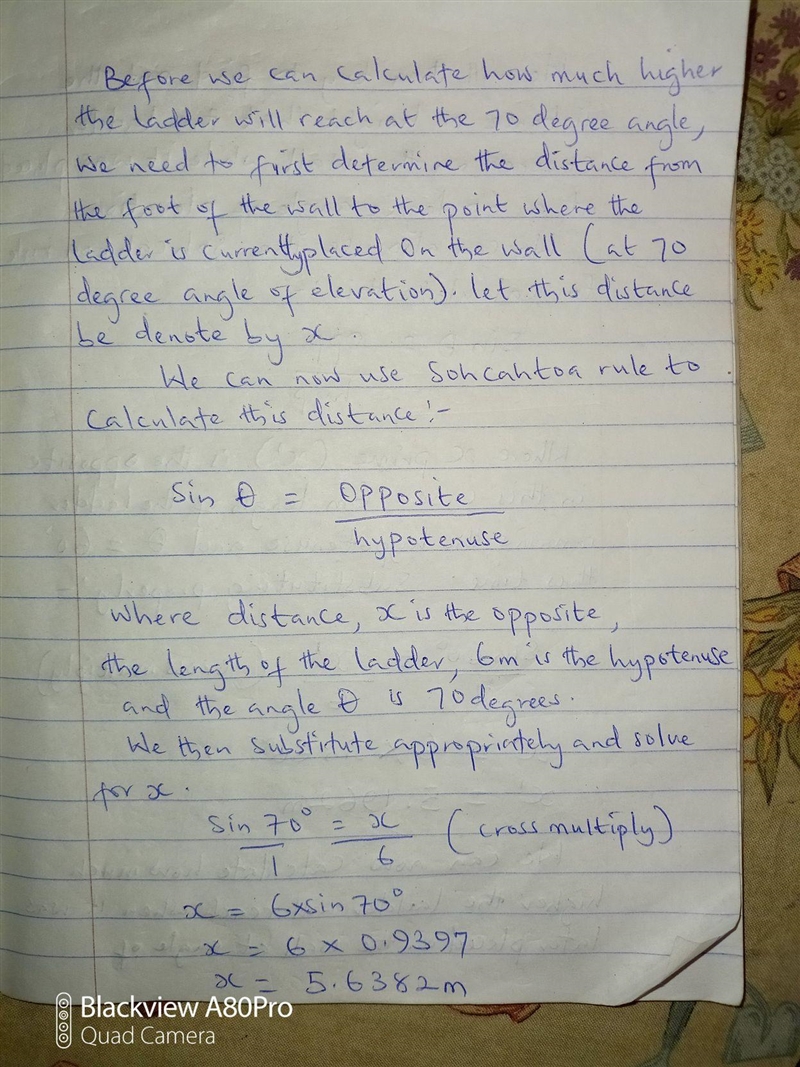 Before we can calculate how much higher
the ladder will reach at the 70 degree angle,
we need to first determine the distance from
the foot of the wall to the point where the
ladder is currentlyplaced On the wall (at 70
degree angle of elevation). let this distance
be denote by x.
We can now use Sohcahtoa rule to
Calculate this distance:-
Sin θ = Opposite
hypotenuse
Where distance, x is the opposite,
the length of the ladder, 6m is the hypotenuse
and the angle θ is 70degrees.
We then substitute appropriately and solve
for x.
Sin 70° = x (cross multiply)
1 6
x = 6xsin 70°
x = 6 x 0.9397
x = 5.6382m
Blackview A80Pro
Quad Camera